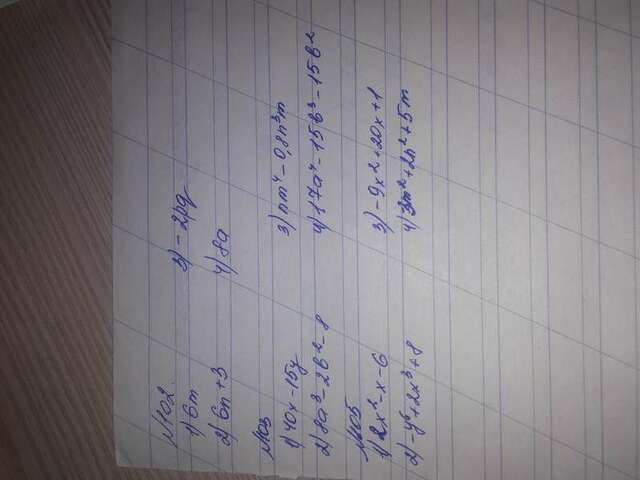 №102.
1) 6m 3) -2pq
2) 6n+3 4) 8a
№103
1) 40x-15y 3) nm⁴-0,8n³m
2) 8a³-2b²-8 4) 17a⁴-15b³-15b²
№105
1) 2x²-x-6 3) -9x²+20x+1
2) -y⁵+2x³+8 4) 3m²+2n²+5m